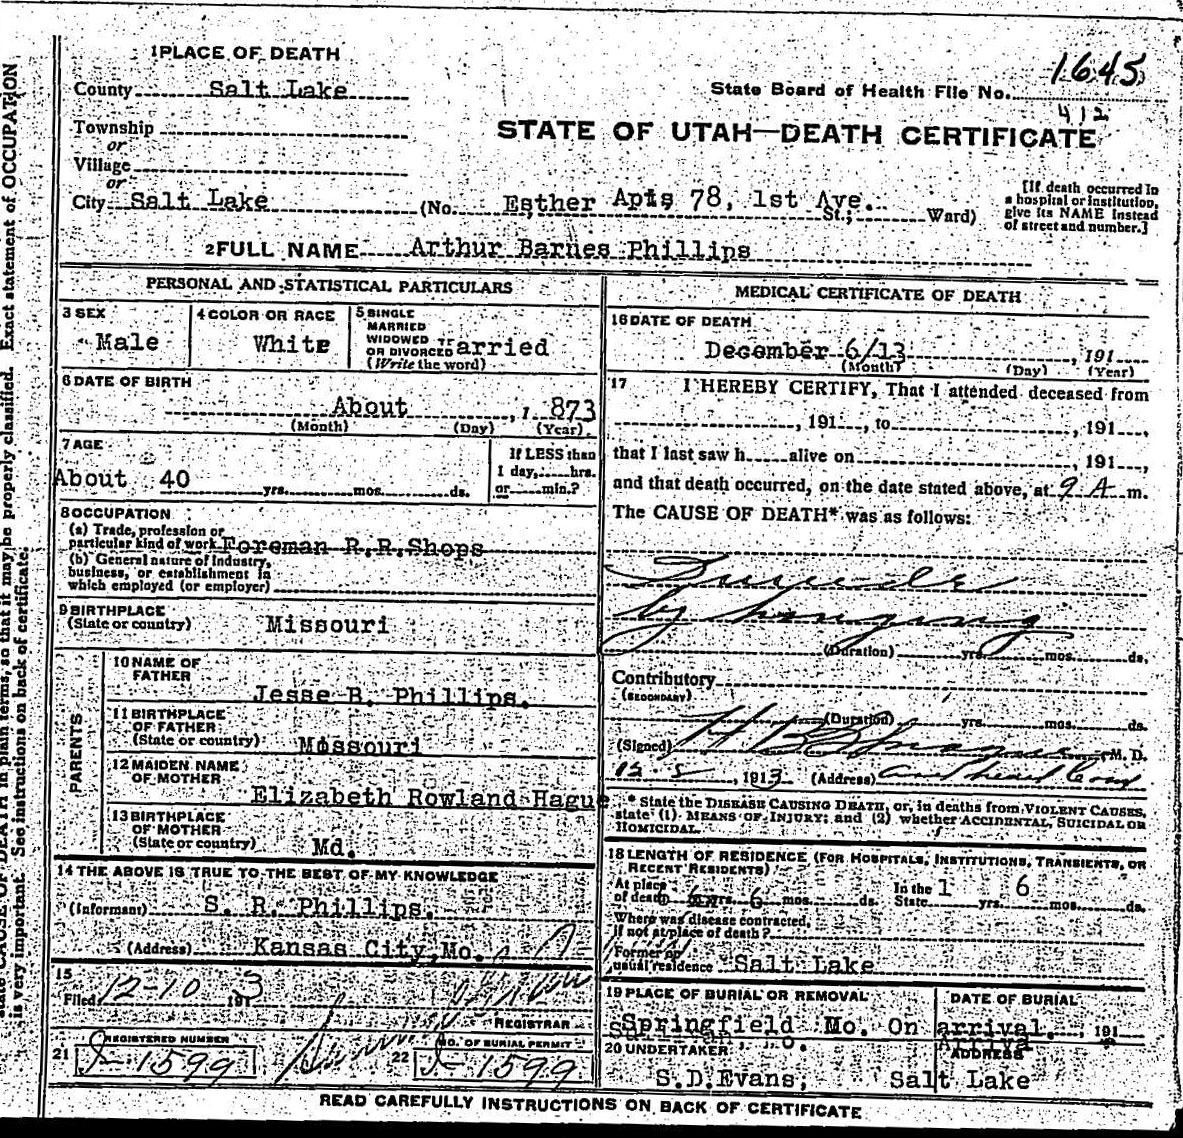 1 PLACE OF DEATH
County Salt Lake
Township
or
Village
or
City Salt Lake (No. Esther Apts 78, 1st Ave. St.; Ward)
1645
State Board of Health File No.
412
STATE OF UTAH—DEATH CERTIFICATE
[If death occurred in
a hospital or institution,
give its NAME instead
of street and number.]
2 FULL NAME Arthur Barnes Phillips
PERSONAL AND STATISTICAL PARTICULARS
3 SEX
Male
4 COLOR OR RACE
White
5 SINGLE
MARRIED
WIDOWED
OR DIVORCED arried
(Write the word)
6 DATE OF BIRTH
About , 1 873
(Month) (Day) (Year)
7 AGE
About 40 yrs. mos. ds.
If LESS than
1 day, hrs.
or min.?
8 OCCUPATION
(a) Trade, profession or
particular kind of work Foreman R.R.Shops
(b) General nature of industry,
business, or establishment in
which employed (or employer)
9 BIRTHPLACE
(State or country) Missouri
PARENTS
10 NAME OF
FATHER
Jesse B. Phillips.
11 BIRTHPLACE
OF FATHER
(State or country) Missouri
12 MAIDEN NAME
OF MOTHER
Elizabeth Rowland Hague
13 BIRTHPLACE
OF MOTHER
(State or country) Md.
14 THE ABOVE IS TRUE TO THE BEST OF MY KNOWLEDGE
(Informant) S. R. Phillips.
(Address) Kansas City, Mo.
15
Filed 12-10 191 3
REGISTRAR
21 REGISTERED NUMBER
1599
22 NO. OF BURIAL PERMIT
1599
MEDICAL CERTIFICATE OF DEATH
16 DATE OF DEATH
December 6/13 , 191
(Month) (Day) (Year)
17 I HEREBY CERTIFY, That I attended deceased from
, 191 , to , 191 ,
that I last saw h alive on , 191 ,
and that death occurred, on the date stated above, at 9 A m.
The CAUSE OF DEATH* was as follows:
Suicide
by hanging
(Duration) yrs. mos. ds.
Contributory
(SECONDARY)
(Duration) yrs. mos. ds.
(Signed) H B Sprague M. D.
, 1913 (Address)
* State the DISEASE CAUSING DEATH, or, in deaths from VIOLENT CAUSES,
state (1) MEANS OF INJURY; and (2) whether ACCIDENTAL, SUICIDAL OR
HOMICIDAL.
18 LENGTH OF RESIDENCE (FOR HOSPITALS, INSTITUTIONS, TRANSIENTS, OR
RECENT RESIDENTS)
At place
of death yrs. 6 mos. ds.
In the
State 1 yrs. 6 mos. ds.
Where was disease contracted,
if not at place of death?
Former or
usual residence Salt Lake
19 PLACE OF BURIAL OR REMOVAL
DATE OF BURIAL
Springfield Mo. On arrival. , 191
Arrival
20 UNDERTAKER
ADDRESS
S.D.Evans, Salt Lake
READ CAREFULLY INSTRUCTIONS ON BACK OF CERTIFICATE
CAUSE OF DEATH in plain terms, so that it may be properly classified. Exact statement of OCCUPATION
is very important. See instructions on back of certificate.